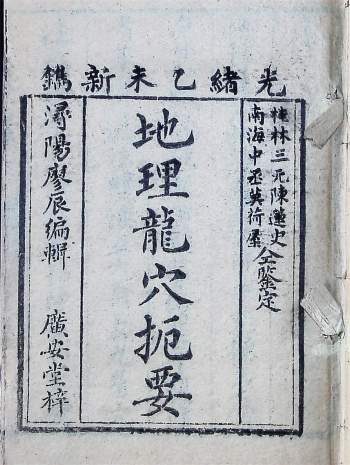 光緒乙未新鐫
桂林三元陳蓮史
南海中丞黃荷屋
仝鑒定
地理龍穴扼要
潯陽廖辰編輯 廣安堂梓